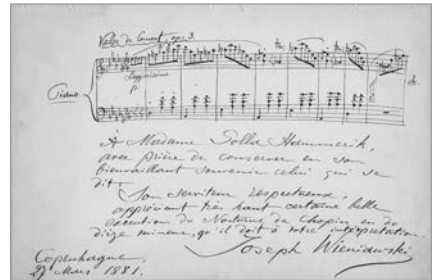 Valse de Concert, op: 3.
Leggierissimo
p.
Piano
À Madame Golla Hammerik,
avec prière de conserver en son
bienveillant souvenir celui qui se
dit
Son serviteur respectueux,
appréciant très haut certaine belle
exécution du Nocturne de Chopin en do
dièze mineur, qu'il doit à votre intérprétation.
Joseph Wieniawski
Copenhague
Mars 1881.